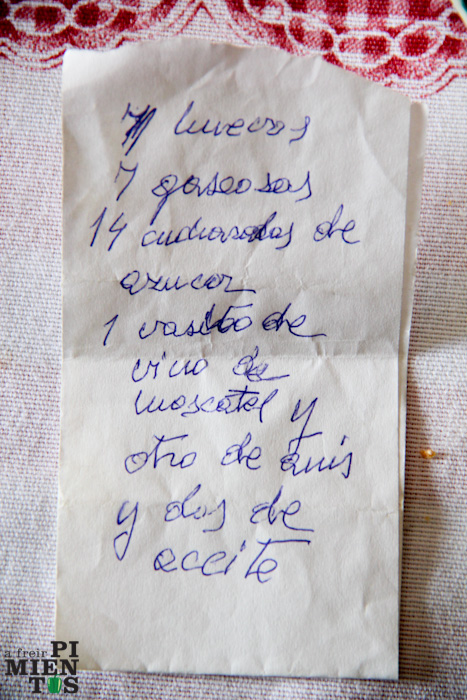 7 huevos
7 gaseosas
14 cucharadas de
azucar
1 vasito de
vino de
moscatel y
otro de anis
y dos de
aceite
a freír
PI
MIEN
TOS